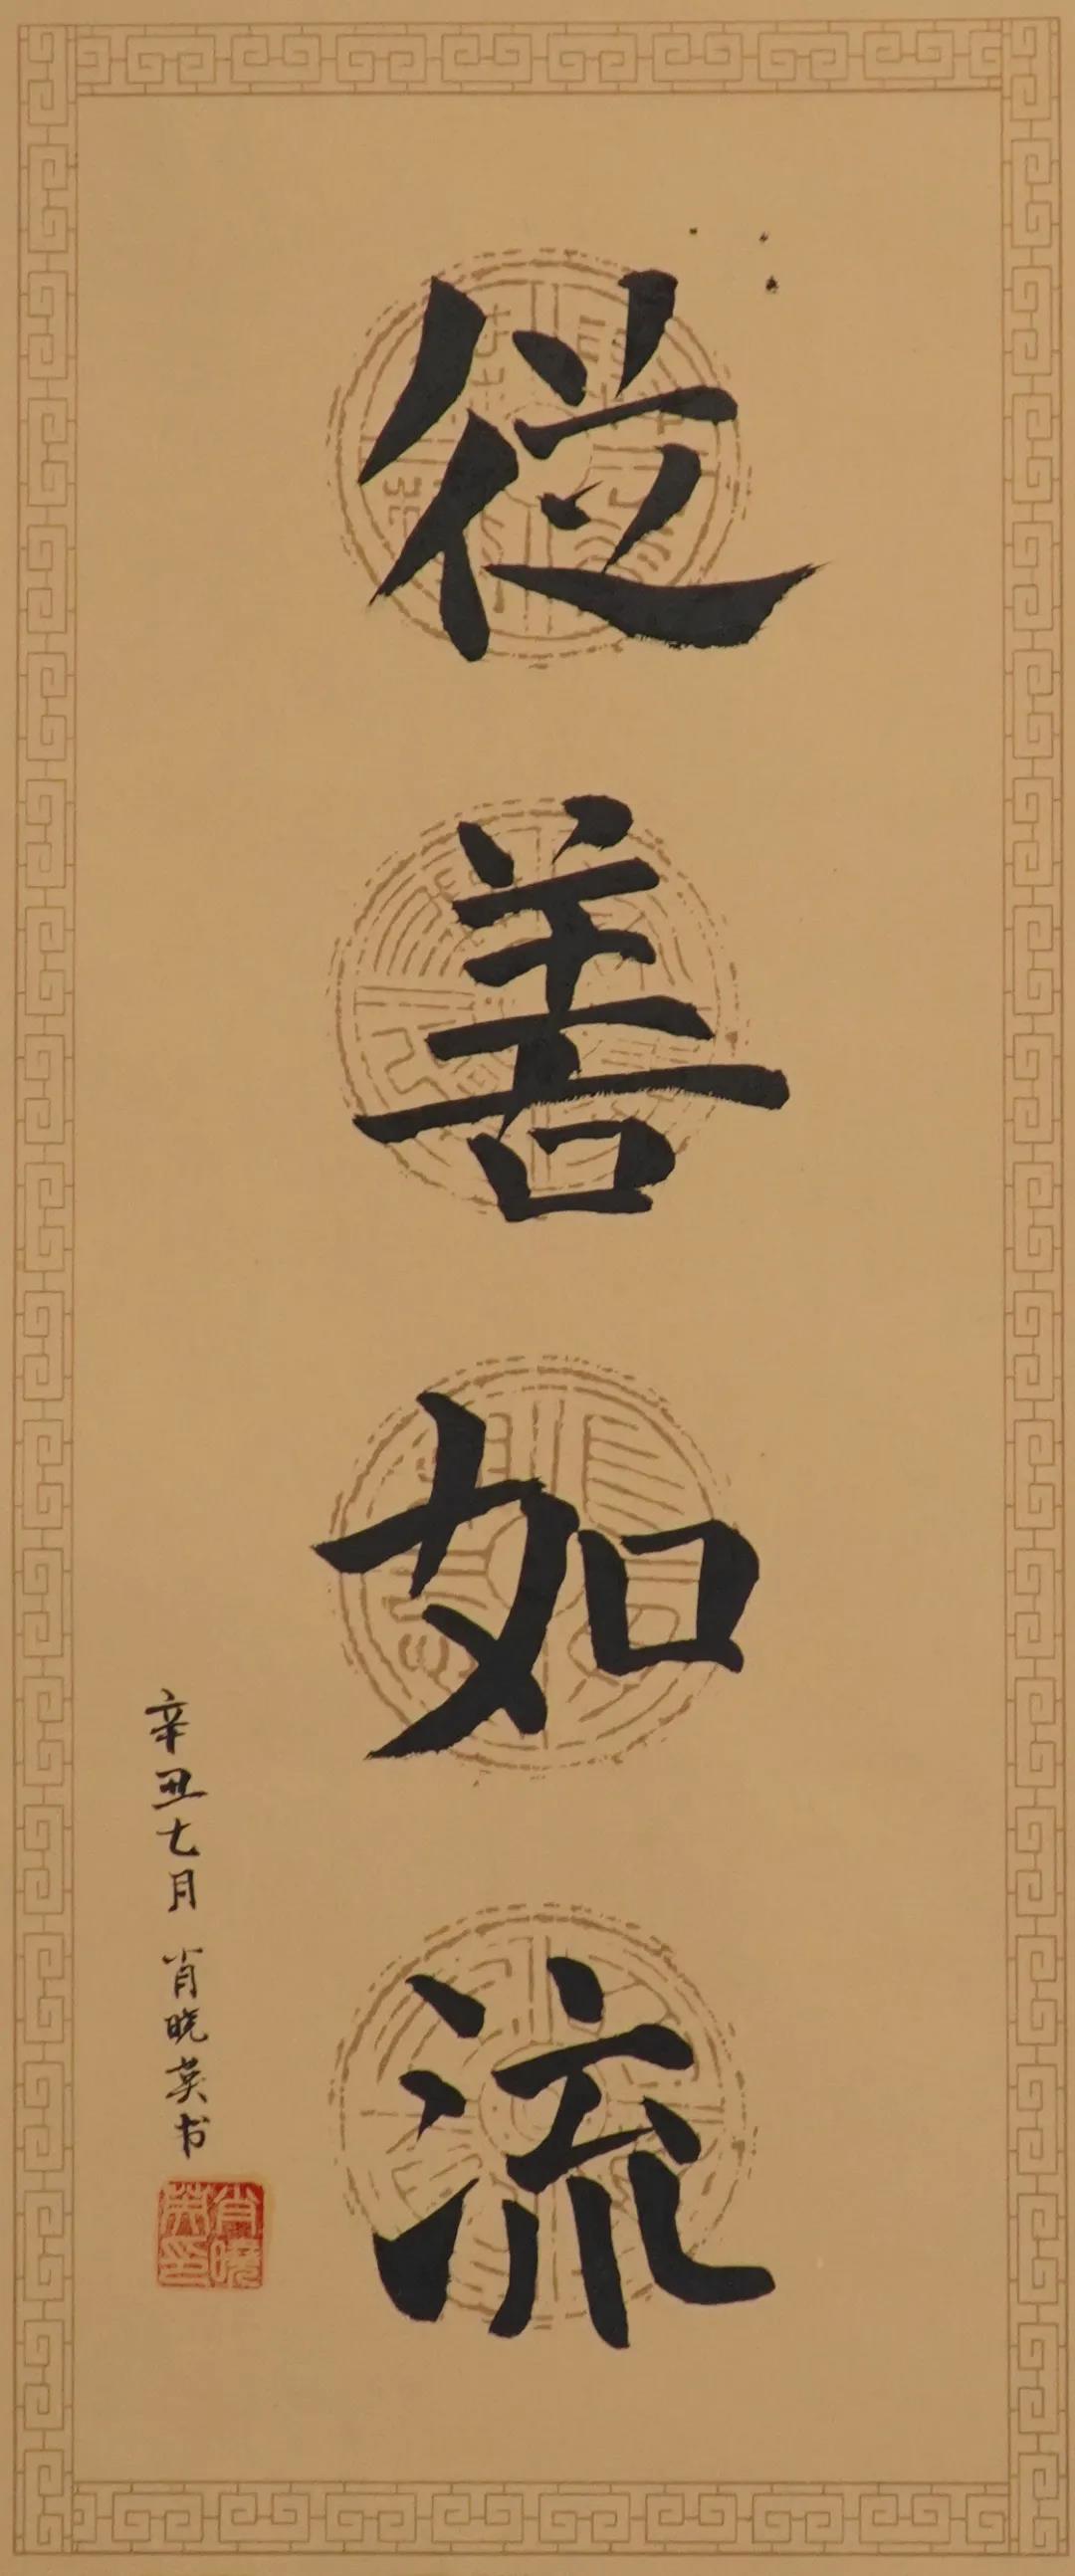 从善如流
辛丑七月 肖晓英书
肖晓英印